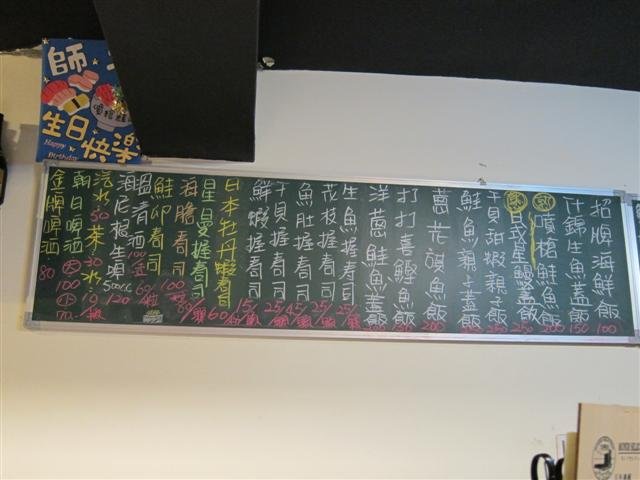 師
生日快樂
Happy
Birthday
招牌海鮮飯 100
什錦生魚蓋飯 150
噴槍鮭魚飯 200
星鰻蓋飯 250
干貝甜蝦親子飯 250
鮭魚親子蓋飯
蔥花旗魚飯 200
打打喜鰹魚飯
洋蔥鮭魚蓋飯
生魚握壽司 25/
花枝握壽司 25/
魚肚握壽司 45/
干貝握壽司 25/
鮮蝦握壽司 15/
日本牡丹蝦壽司 60/
星星握壽司
海膽壽司 80/
鮭卵壽司 100
溫清酒 100
海尼根生啤 500cc 120
汽水 50 茶水
朝日啤酒 大100 小70
金牌啤酒 80